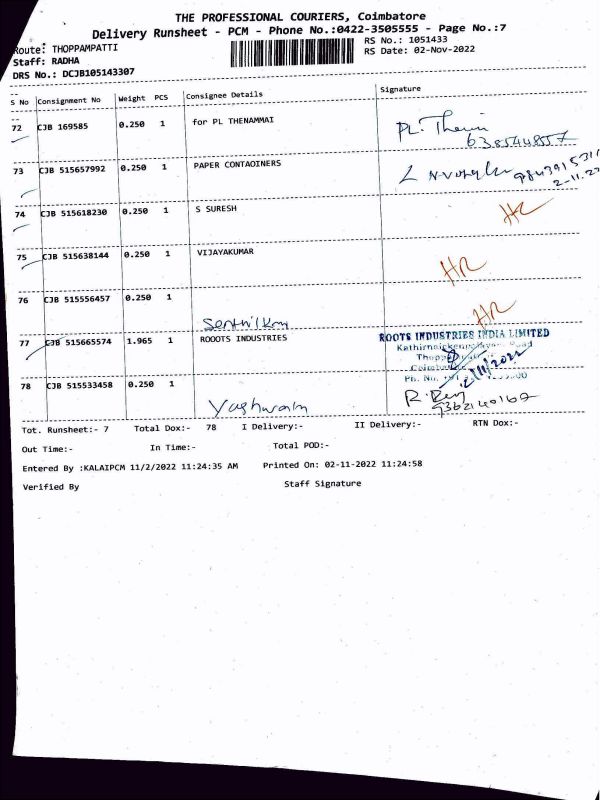 THE PROFESSIONAL COURIERS, Coimbatore
Delivery Runsheet - PCM - Phone No.:0422-3505555 - Page No.:7
Route: THOPPAMPATTI
RS No.: 1051433
Staff: RADHA
RS Date: 02-Nov-2022
DRS No.: DCJB105143307
S No Consignment No Weight PCS Consignee Details Signature
72 CJB 169585 0.250 1 for PL THENAMMAI PL.
73 CJB 515657992 0.250 1 PAPER CONTAOINERS
2-11.22
74 CJB 515618230 0.250 1 S SURESH HR
75 CJB 515638144 0.250 1 VIJAYAKUMAR HR
76 CJB 515556457 0.250 1 HR
77 CJB 515665574 1.965 1 ROOOTS INDUSTRIES ROOTS INDUSTRIES INDIA LIMITED
78 CJB 515533458 0.250 1
Tot. Runsheet:- 7 Total Dox:- 78 I Delivery:- II Delivery:- RTN Dox:-
Out Time:- In Time:- Total POD:-
Entered By :KALAIPCM 11/2/2022 11:24:35 AM Printed On: 02-11-2022 11:24:58
Verified By Staff Signature